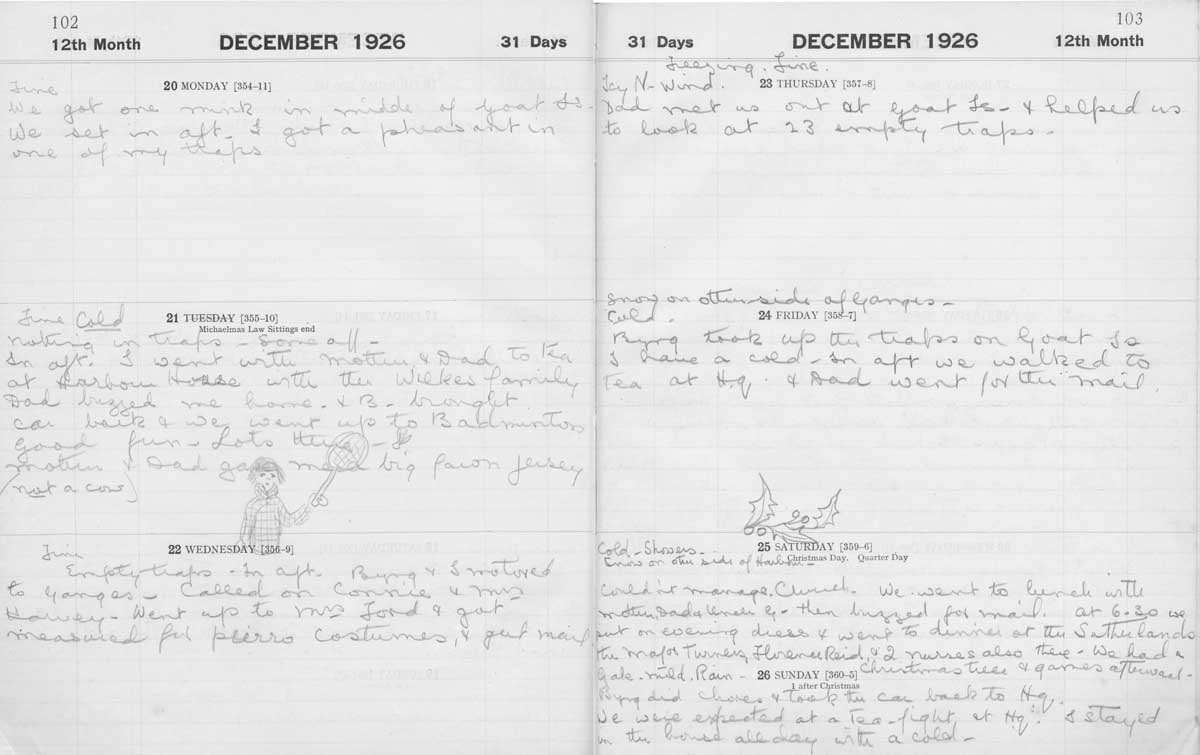 102
12th Month DECEMBER 1926 31 Days
Fine
20 MONDAY [354-11]
We got one mink in middle of Goat Is-
We set in aft. I got a pheasant in
one of my traps
Fine Cold
21 TUESDAY [355-10]
Michaelmas Law Sittings end
Nothing in traps - Some off -
In aft. I went with Mother & Dad to tea
at Harbour House with the Wilkes family
Dad buzzed me home. & B- brought
car back & we went up to Badminton
Good fun - Lots there -
Mother & Dad gave me a big fawn jersey
(not a cow)
Fine
22 WEDNESDAY [356-9]
Empty traps - In aft. Byng & I motored
to Ganges - Called on Connie & Mrs
Harvey - Went up to Mrs Ford & got
measured for pierro costumes, & got mail
103
31 Days DECEMBER 1926 12th Month
Freezing. Fine.
Icy N- Wind.
23 THURSDAY [357-8]
Dad met us out at Goat Is- & helped us
to look at 23 empty traps -
Snow on other side of Ganges -
Cold.
24 FRIDAY [358-7]
Byng took up the traps on Goat Is
I have a cold - In aft we walked to
tea at Hq. & Dad went for the mail.
Cold - Showers -
25 SATURDAY [359-6]
Snow on other side of Harbour -
Christmas Day. Quarter Day
Couldn't manage Church. We went to lunch with
Mother, Dad & - then buzzed for mail. at 6-30 we
put on evening dress & went to dinner at the Sutherlands
the Major Turners, Florence Reid, & 2 nurses also there - We had a
Christmas tree & games afterward -
Gale - mild. Rain -
26 SUNDAY [360-5]
1 after Christmas
Byng did chores & took the car back to Hq.
We were expected at a tea-fight at Hq. I stayed
in the house all day with a cold -